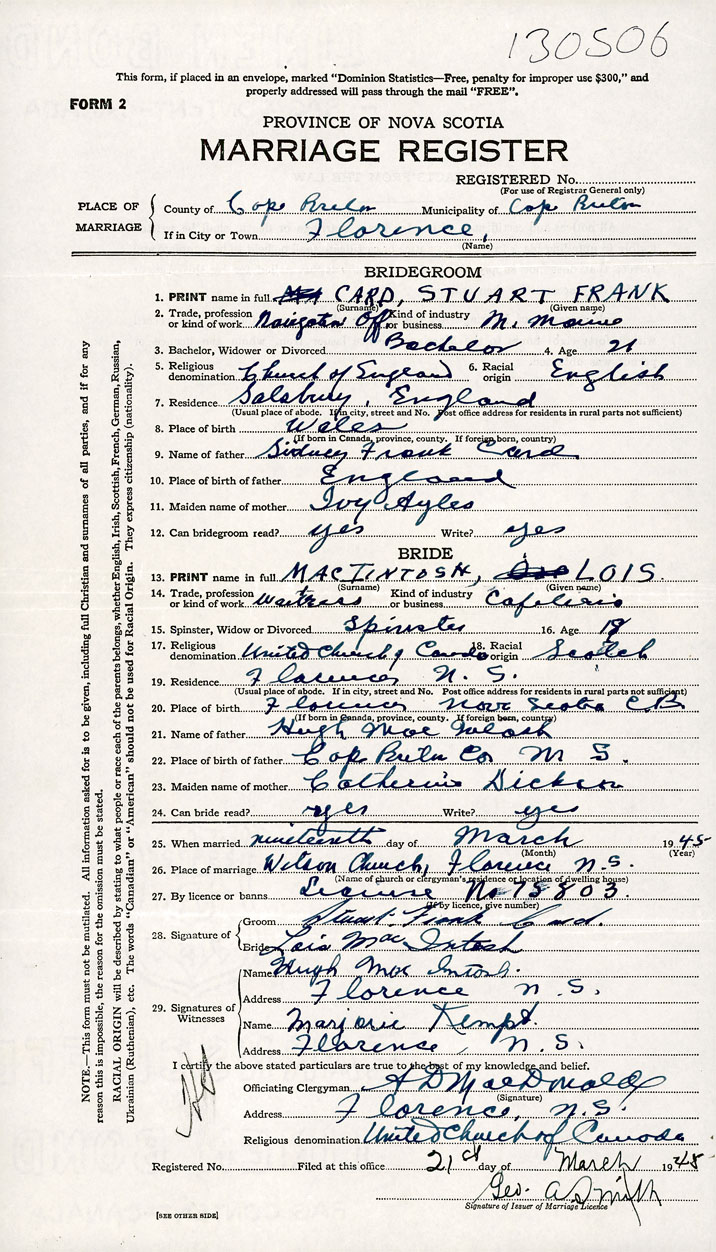 130506
This form, if placed in an envelope, marked "Dominion Statistics—Free, penalty for improper use $300," and
properly addressed will pass through the mail "FREE".
FORM 2
PROVINCE OF NOVA SCOTIA
MARRIAGE REGISTER
REGISTERED No.
(For use of Registrar General only)
PLACE OF MARRIAGE
County of Cape Breton Municipality of Cape Breton
If in City or Town Florence,
(Name)
BRIDEGROOM
1. PRINT name in full CARD, STUART FRANK
(Surname) (Given name)
2. Trade, profession or kind of work Navigator Off. Kind of industry or business M. Marine
3. Bachelor, Widower or Divorced Bachelor 4. Age 21
5. Religious denomination Church of England 6. Racial origin English
7. Residence Salsbury, England
(Usual place of abode. If in city, street and No. Post office address for residents in rural parts not sufficient)
8. Place of birth Wales
(If born in Canada, province, county. If foreign born, country)
9. Name of father Sidney Frank Card
10. Place of birth of father England
11. Maiden name of mother Ivy Ayles
12. Can bridegroom read? yes Write? yes
BRIDE
13. PRINT name in full MACINTOSH, LOIS.
(Surname) (Given name)
14. Trade, profession or kind of work Waitress Kind of industry or business Cafeteria
15. Spinster, Widow or Divorced Spinster 16. Age 18
17. Religious denomination United Church of Canada 18. Racial origin Scotch
19. Residence Florence N.S.
(Usual place of abode. If in city, street and No. Post office address for residents in rural parts not sufficient)
20. Place of birth Florence Nova Scotia C.B.
(If born in Canada, province, county. If foreign born, country)
21. Name of father Hugh Mac Intosh
22. Place of birth of father Cape Breton Co N S.
23. Maiden name of mother Catherine Dickson
24. Can bride read? yes Write? yes
25. When married nineteenth day of March 1945
(Month) (Year)
26. Place of marriage Wilson Church, Florence N.S.
(Name of church or clergyman's residence or location of dwelling house)
27. By licence or banns License No 75803.
(If by licence, give number)
28. Signature of
Groom Stuart Frank Card.
Bride Lois Mac Intosh
29. Signatures of Witnesses
Name Hugh Mac Intosh.
Address Florence N.S.
Name Marjorie Kempt.
Address Florence, N.S.
I certify the above stated particulars are true to the best of my knowledge and belief.
Officiating Clergyman A D MacDonald
(Signature)
Address Florence, N.S.
Religious denomination United Church of Canada
Registered No. Filed at this office 21st day of March 1945
Geo. A Smith
Signature of Issuer of Marriage Licence
[SEE OTHER SIDE]
NOTE.—This form must not be mutilated. All information asked for is to be given, including full Christian and surnames of all parties, and if for any
reason this is impossible, the reason for the omission must be stated.
RACIAL ORIGIN will be described by stating to what people or race each of the parents belongs, whether English, Irish, Scottish, French, German, Russian,
Ukrainian (Ruthenian), etc. The words "Canadian" or "American" should not be used for Racial Origin. They express citizenship (nationality).